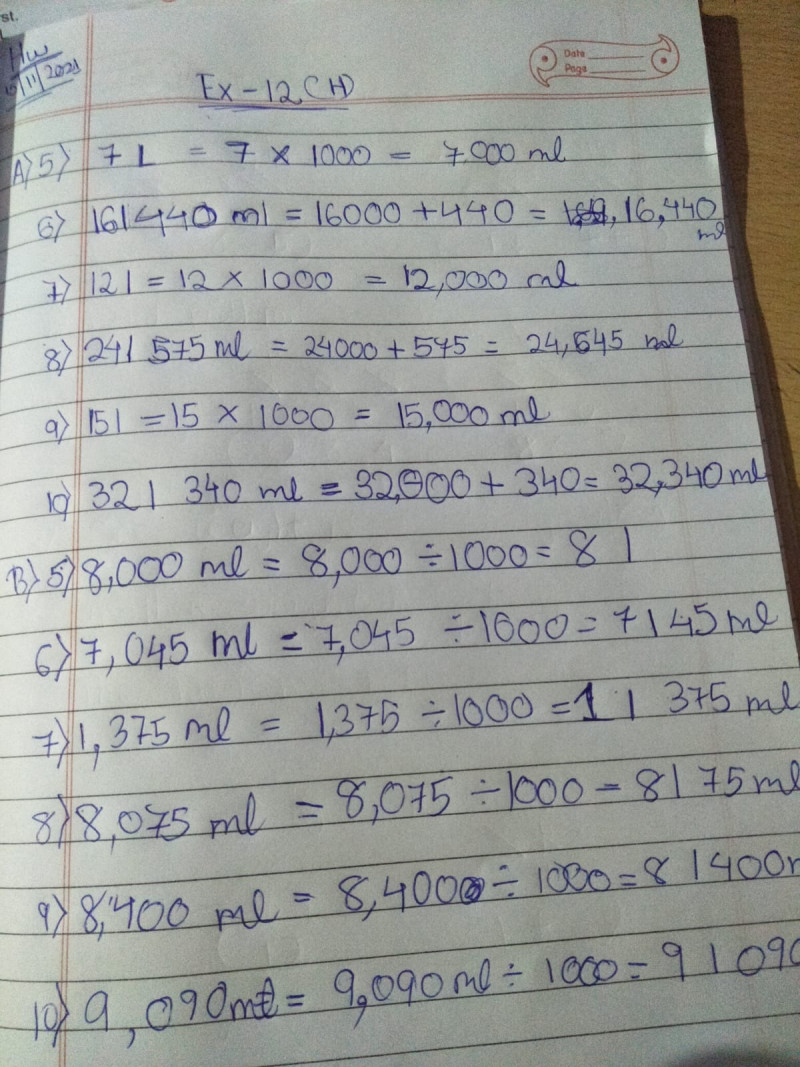 st.
Hw
15/11/2021
Date
Page
Ex-12(H)
A) 5) 7 L = 7 × 1000 = 7000 ml
6) 16l 440 ml = 16000 + 440 = 16,440 ml
7) 12l = 12 × 1000 = 12,000 ml
8) 24l 575 ml = 24000 + 575 = 24,545 ml
9) 15l = 15 × 1000 = 15,000 ml
10) 32l 340 ml = 32,000 + 340 = 32,340 ml
B) 5) 8,000 ml = 8,000 ÷ 1000 = 8 l
6) 7,045 ml = 7,045 ÷ 1000 = 7l 45 ml
7) 1,375 ml = 1,375 ÷ 1000 = 1 l 375 ml
8) 8,075 ml = 8,075 ÷ 1000 = 8l 75 ml
9) 8,400 ml = 8,400 ÷ 1000 = 8 l 400 m
10) 9,090 ml = 9,090 ml ÷ 1000 = 9 l 090